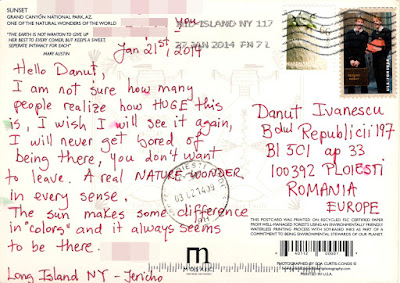 SUNSET
GRAND CANYON NATIONAL PARK, AZ.
ONE OF THE NATURAL WONDERS OF THE WORLD
"THE EARTH IS NOT WANTON TO GIVE UP
HER BEST TO EVERY COMER, BUT KEEPS A SWEET,
SEPARATE INTIMACY FOR EACH"
MARY AUSTIN
you
ISLAND NY 117
27 JAN 2014 PM 7 L
Jan 21st, 2014
Hello Danut,
I am not sure how many
people realize how HUGE this
is, I wish I will see it again,
I will never get bored of
being there, you don't want
to leave. A real NATURE WONDER
in every sense.
The sun makes some difference
in "colors" and it always seems
to be there.
Long Island NY - Jericho
Danut Ivanescu
Bdul Republicii 197
Bl 5C1 ap 33
100392 PLOIESTI
ROMANIA
EUROPE
PLOIESTI
03.02.14.09
m
MOSAIC
THIS POSTCARD WAS PRINTED ON RECYCLED FSC CERTIFIED PAPER
FROM WELL-MANAGED FORESTS USING AN ENVIRONMENTALLY FRIENDLY
WATERLESS PRINTING PROCESS WITH SOY-BASED INKS AS PART OF A
COMMITMENT TO BEING ENVIRONMENTAL STEWARDS OF OUR PLANET.
PRINTED IN U.S.A.